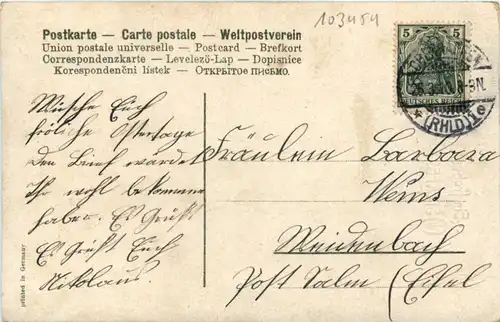 103454
Postkarte — Carte postale — Weltpostverein
Union postale universelle — Postcard — Brefkort
Correspondenzkarte — Levelező-Lap — Dopisnice
Korespondenčni listek — ОТКРЫТОЕ ПИСЬМО.
5 5
DEUTSCHES REICH
8-9N.
(RHLD.) 1e
Wüsche Euch
fröliche Ostertage
Den Brief werdet
Ihr wohl bekommen
haben. Es Grüßt
Es Grüßt Euch
Nikolaus.
Fräulein Barbara
Weins
Weidenbach
Post Salm (Eifel
printed in Germany